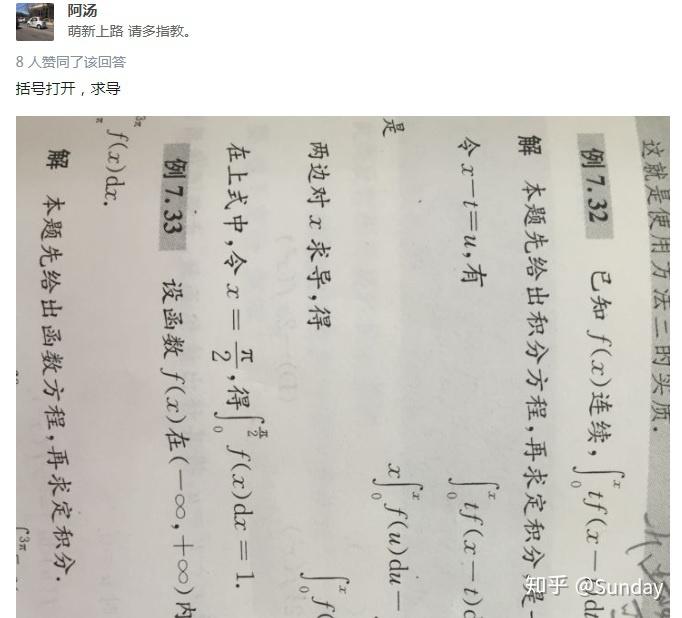 阿汤
萌新上路 请多指教。
8 人赞同了该回答
括号打开，求导
这就是使用方法二的实质.
例7.32 已知 f(x)连续,∫₀ˣ tf(x-
解 本题先给出积分方程,再求定积分,是
令 x-t=u,有
∫₀ˣ tf(x-t)d
是
x∫₀ˣ f(u)du-
两边对 x 求导,得
∫₀ˣ f(
在上式中,令 x=π/2,得∫₀^(π/2) f(x)dx=1.
例7.33 设函数 f(x)在(-∞,+∞)内
f(x)dx.
解 本题先给出函数方程,再求定积分.
∫3π
知乎 @Sunday